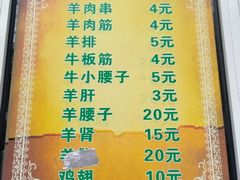 羊肉串 4元
羊肉筋 4元
羊排 5元
牛板筋 4元
牛小腰子 5元
羊肝 3元
羊腰子 20元
羊肾 15元
羊 20元
鸡翅 10元